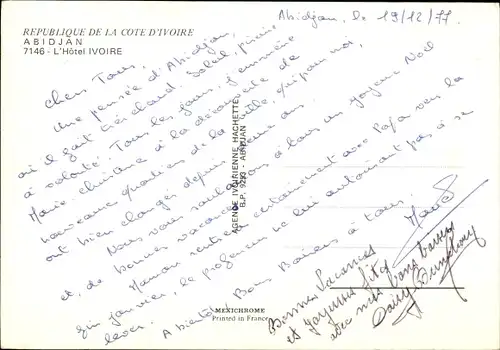 REPUBLIQUE DE LA COTE D'IVOIRE
ABIDJAN
7146 - L'Hôtel IVOIRE
Abidjan, le 19/12/77
Chers Tous,
Une pensée d'Abidjan,
où il fait très chaud Soleil, piscine
à volonté. Tous les jours, j'emmène
Marie Christine à la découverte de
nouveaux quartiers de la ville, qui pour moi,
ont bien changés depuis ans.
Nous vous souhaitons à tous un joyeux Noël
et, de bonnes vacances.
Maman rentrera certainement avec Papa vers la
fin janvier, le professeur ne lui autorisant pas à se
lever.
A bientôt Bons Baisers à tous
Bonnes Vacances
et Joyeuses fêtes
avec mes bons baisers
AGENCE IVOIRIENNE HACHETTE
B.P. 9293 - ABIDJAN
MEXICHROME
Printed in France